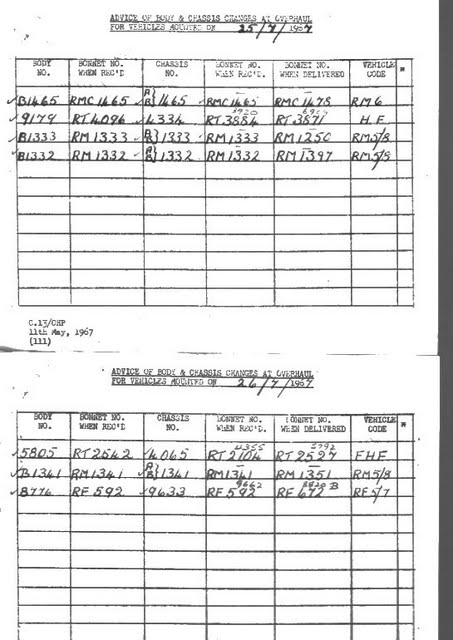 ADVICE OF BODY & CHASSIS CHANGES AT OVERHAUL
FOR VEHICLES MOUNTED ON 25/7/1967
BODY NO. BONNET NO. WHEN REC'D CHASSIS NO. BONNET NO. WHEN REC'D. BONNET NO. WHEN DELIVERED VEHICLE CODE *
✓B1465 RMC1465 A/B}1465 ✓RMC1465 RMC1478 RM6
✓9179 RT4096 ✓4334 ✓RT3884 RT3871 H.F
✓B1333 RM1333 ✓A/B}1333 ✓RM1333 RM1250 RM5/8
✓B1332 RM1332 ✓A/B}1332 RM1332 RM1397 RM5/8
C.13/CHP
11th May, 1967
(111)
ADVICE OF BODY & CHASSIS CHANGES AT OVERHAUL
FOR VEHICLES MOUNTED ON 26/7/1967
BODY NO. BONNET NO. WHEN REC'D CHASSIS NO. BONNET NO. WHEN REC'D. BONNET NO. WHEN DELIVERED VEHICLE CODE *
✓5805 RT2542 ✓4065 RT2104 RT2527 FHF
✓B1341 RM1341 ✓A/B}1341 RM1341 RM1351 RM5/8
✓B776 RF592 ✓9633 RF592 RF672 RF5/7